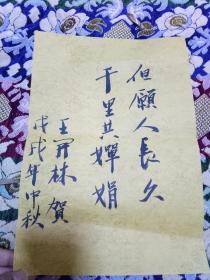 但願人長久
千里共嬋娟
王林賀
戊戌年中秋